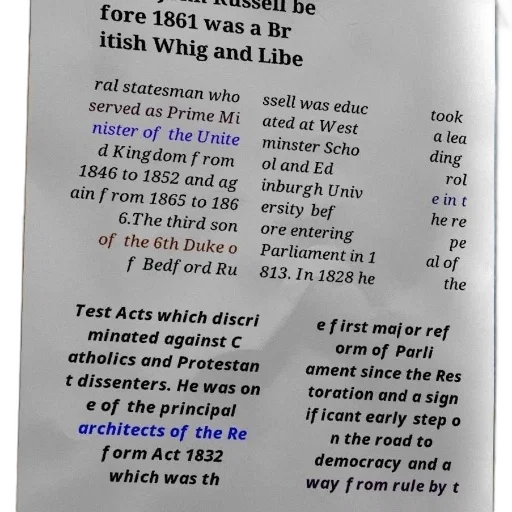 Russell be
fore 1861 was a Br
itish Whig and Libe
ral statesman who
served as Prime Mi
nister of the Unite
d Kingdom from
1846 to 1852 and ag
ain from 1865 to 186
6.The third son
of the 6th Duke o
f Bedford Ru
ssell was educ
ated at West
minster Scho
ol and Ed
inburgh Univ
ersity bef
ore entering
Parliament in 1
813. In 1828 he
took
a lea
ding
rol
e in t
he re
pe
al of
the
Test Acts which discri
minated against C
atholics and Protestan
t dissenters. He was on
e of the principal
architects of the Re
form Act 1832
which was th
e first major ref
orm of Parli
ament since the Res
toration and a sign
ificant early step o
n the road to
democracy and a
way from rule by t